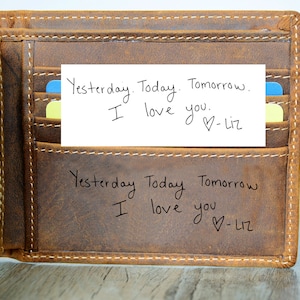 Yesterday. Today. Tomorrow.
I love you.
♡-Liz
Yesterday Today Tomorrow
I love you
♡-Liz